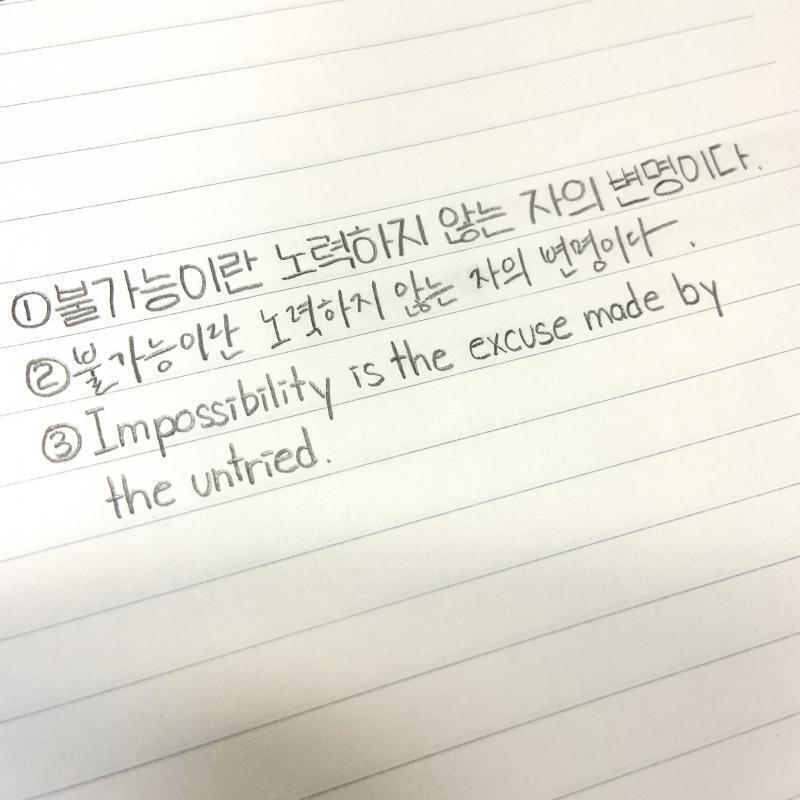 ①불가능이란 노력하지 않는 자의 변명이다.
②불가능이란 노력하지 않는 자의 변명이다.
③Impossibility is the excuse made by
the untried.